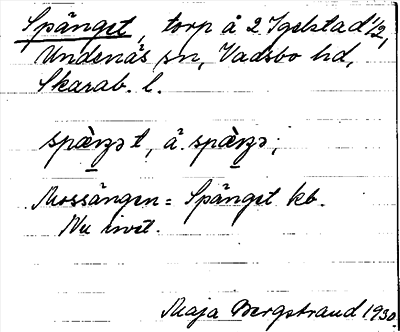 Spänget, torp å 2 Igelstad 1/2,
Undenäs sn, Vadsbo hd,
Skarab. l.
spæ̀ŋət, å spæ̀ŋə;
Mossängen = Spänget kb.
Nu rivet.
Maja Bergstrand 1930.